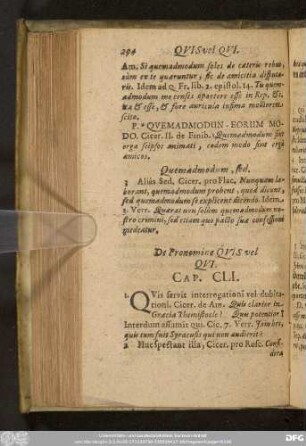 294 QVIS vel QVI.
Am. Si quemadmodum soles de cæteris rebus,
cùm ex te quæruntur, sic de amicitia disputa-
ris. Idem ad Q. Fr. lib. 2. epistol. 14. Tu quem-
admodum me censes oportere esse in Rep. &
& esse, & fore auricula infima molliorem
scito.
QVEMADMODUM - EORUM MO-
DO. Cicer. II. de Finib.
erga seipsos animati, eodem modo sint erga
amicos.
Quemadmodum, sed.
3 Aliàs Sed, Cicer. pro Flac. Nunquam la-
borant, quemadmodum probent, quod dicunt,
sed quemadmodum se explicent dicendo. Idem.
3. Verr. Quæras non solùm quemadmodum no-
stro crimini, sed etiam quo pacto suæ confessioni
De Pronomine QVIS vel
QVI.
CAP. CLI.
1. QVis servit interrogationi vel dubita-
tioni. Cicer. de Am. Quis clarior in
Græcia Themistocle? Quis potentior?
Interdum assumis qui. Cic. 7. Verr.
quis tum fuit Syracusis qui non audierit?
2 Huc spectant illa, Cicer. pro Rosc. Consi-
dera